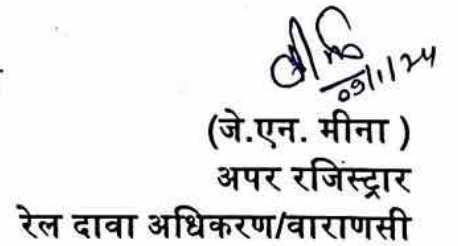 09/1/24
(जे.एन. मीना )
अपर रजिस्ट्रार
रेल दावा अधिकरण/वाराणसी